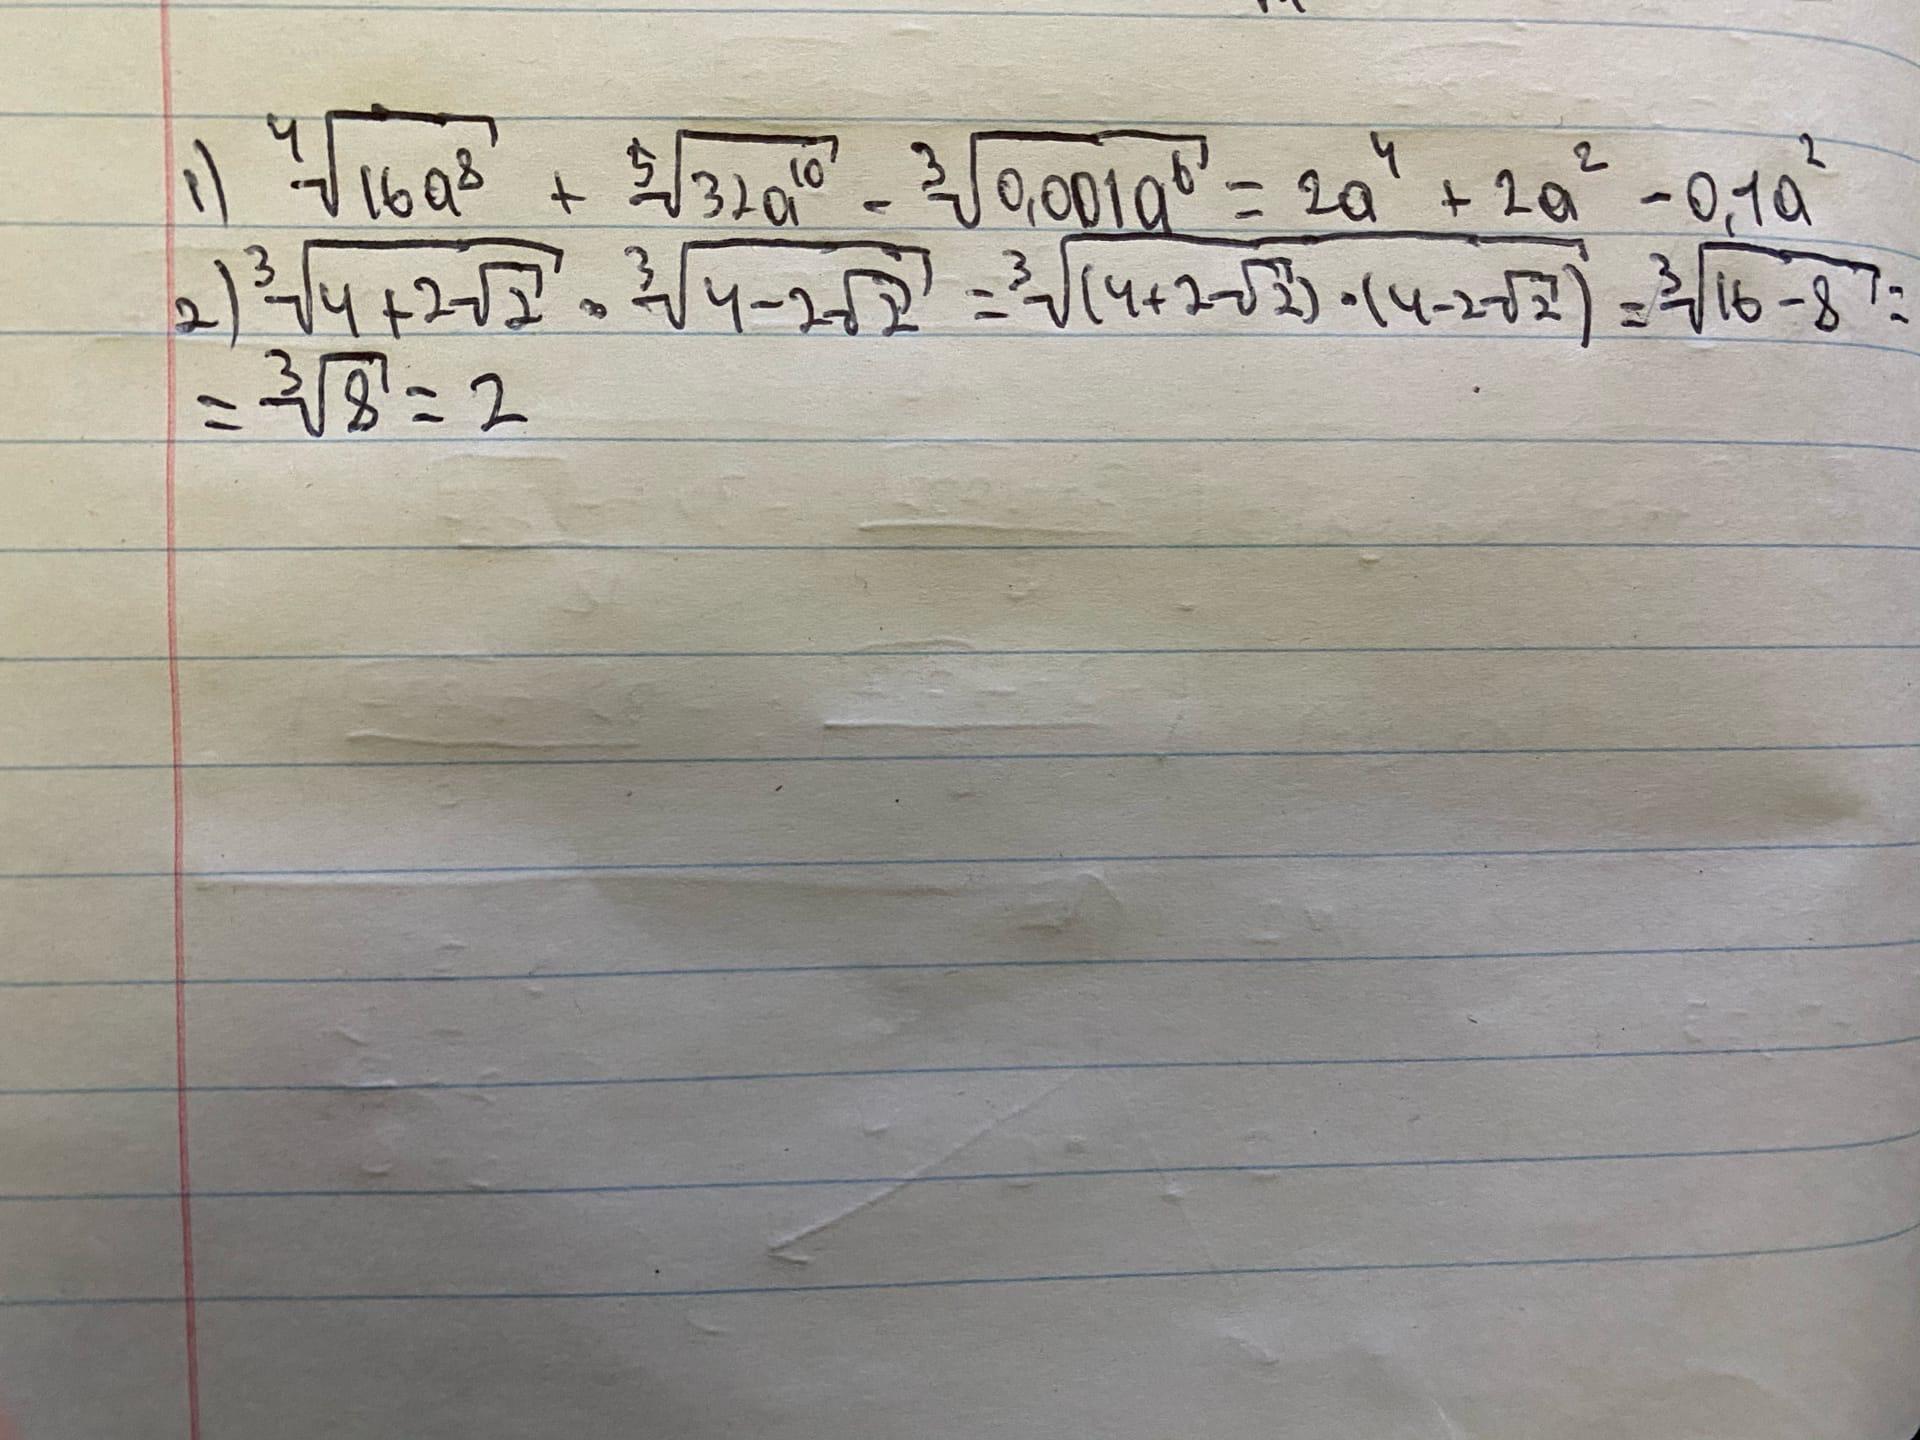 1) ⁴√(16a⁸) + ⁵√(32a¹⁰) - ³√(0,001a⁶) = 2a⁴ + 2a² - 0,1a²
2) ³√(4+2√2) · ³√(4-2√2) = ³√((4+2√2)·(4-2√2)) = ³√(16-8) =
= ³√8 = 2